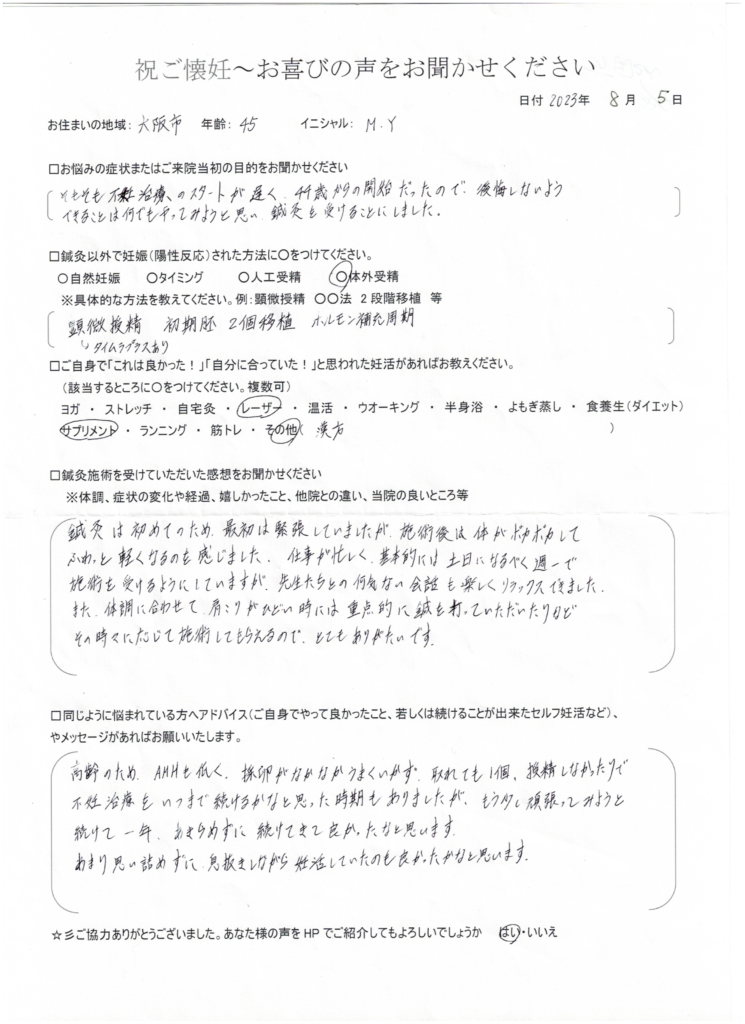 祝ご懐妊～お喜びの声をお聞かせください
日付 2023年 8月 5日
お住まいの地域: 大阪市 年齢: 45 イニシャル: M.Y
□お悩みの症状またはご来院当初の目的をお聞かせください
そもそも不妊治療のスタートが遅く、44歳からの開始だったので、後悔しないよう
できることは何でもやってみようと思い、鍼灸も受けることにしました。
□鍼灸以外で妊娠(陽性反応)された方法に○をつけてください。
○自然妊娠 ○タイミング ○人工受精 ○体外受精
※具体的な方法を教えてください。例:顕微授精 ○○法 2段階移植 等
顕微授精 初期胚 2個移植 ホルモン補充周期
↳タイムラプスあり
□ご自身で「これは良かった!」「自分に合っていた!」と思われた妊活があればお教えください。
(該当するところに○をつけてください。複数可)
ヨガ ・ ストレッチ ・ 自宅灸 ・ レーザー ・ 温活 ・ ウオーキング ・ 半身浴 ・ よもぎ蒸し ・ 食養生(ダイエット)
サプリメント ・ ランニング ・ 筋トレ ・ その他( 漢方 )
□鍼灸施術を受けていただいた感想をお聞かせください
※体調、症状の変化や経過、嬉しかったこと、他院との違い、当院の良いところ等
鍼灸は初めてのため、最初は緊張していましたが、施術後は体がポカポカして
ふわっと軽くなるのを感じました。仕事が忙しく、基本的には土日になるべく週一で
施術を受けるようにしていますが、先生たちとの何気ない会話も楽しくリラックスできました。
また、体調に合わせて、肩こりがひどい時には重点的に鍼を打っていただいたりなど
その時々に応じて施術してもらえるので、とてもありがたいです。
□同じように悩まれている方へアドバイス(ご自身でやって良かったこと、若しくは続けることが出来たセルフ妊活など)、
やメッセージがあればお願いいたします。
高齢のため、AMHも低く、採卵がなかなかうまくいかず、取れても1個、授精しなかったりで
不妊治療をいつまで続けるかなと思った時期もありましたが、もう少し頑張ってみようと
続けて一年、あきらめずに続けてきて良かったなと思います。
あまり思い詰めずに、息抜きしながら妊活していたのも良かったかなと思います。
☆彡ご協力ありがとうございました。あなた様の声をHPでご紹介してもよろしいでしょうか はい・いいえ